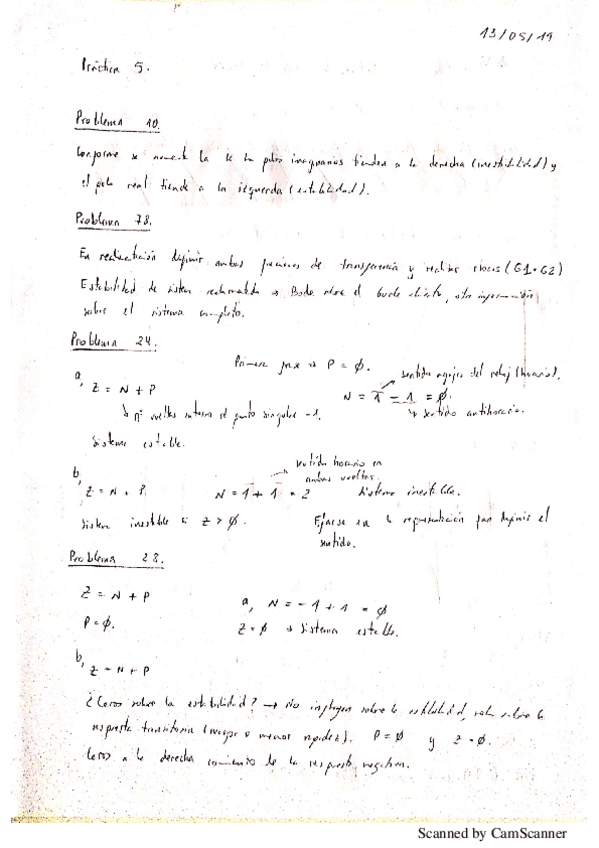 13/05/19
Práctica 5.
Problema 10.
Conforme se aumenta la k los polos imaginarios tienden a la derecha (inestabilidad) y
el polo real tiende a la izquierda (estabilidad).
Problema 78.
En realimentación definir ambas funciones de transferencia y realizar (G1·G2)
Estabilidad de sistema realimentado → Bode sobre el bucle abierto, otra información
sobre el sistema completo.
Problema 24.
Primera fase → P = Ø.
sentido agujas del reloj (horario).
a, Z = N + P
N = 1 - 1 = Ø.
↳ nº vueltas entorno al punto singular -1.
↳ sentido antihorario.
Sistema estable.
sentido horario en
ambas vueltas.
b, Z = N + P.
N = 1 + 1 = 2
Sistema inestable.
Sistema inestable si Z > Ø.
Fijarse en la representación para definir el
sentido.
Problema 28.
Z = N + P
a, N = -1 + 1 = Ø
P = Ø.
Z = Ø → Sistema estable.
b, Z = N + P
¿Ceros sobre la estabilidad? → No influyen sobre la estabilidad, solo sobre la
respuesta transitoria (mayor o menor rapidez). P = Ø y Z = Ø.
Ceros a la derecha comienzo de la respuesta negativa.
Scanned by CamScanner